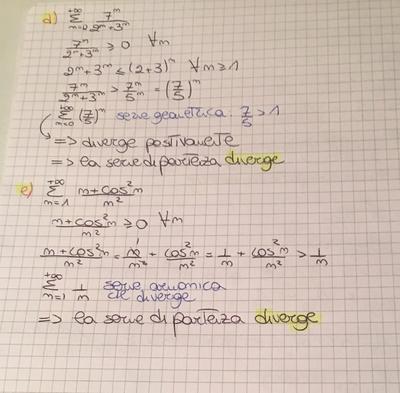 d) +∞ Σ m=0 7^m / 2^m+3^m
7^m / 2^m+3^m ≥ 0 ∀m
2^m+3^m ≤ (2+3)^m ∀m≥1
7^m / 2^m+3^m > 7^m / 5^m = (7/5)^m
+∞ Σ m=0 (7/5)^m serie geometrica. 7/5 > 1
=> diverge positivamente
=> la serie di partenza diverge
e) +∞ Σ m=1 m+cos²m / m²
m+cos²m / m² ≥ 0 ∀m
m+cos²m / m² = m / m² + cos²m / m² = 1/m + cos²m / m² > 1/m
+∞ Σ m=1 1/m serie armonica
che diverge
=> la serie di partenza diverge